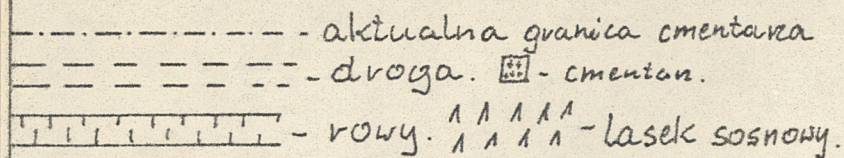 - aktualna granica cmentarza
- droga. - cmentarz.
- rowy. - lasek sosnowy.